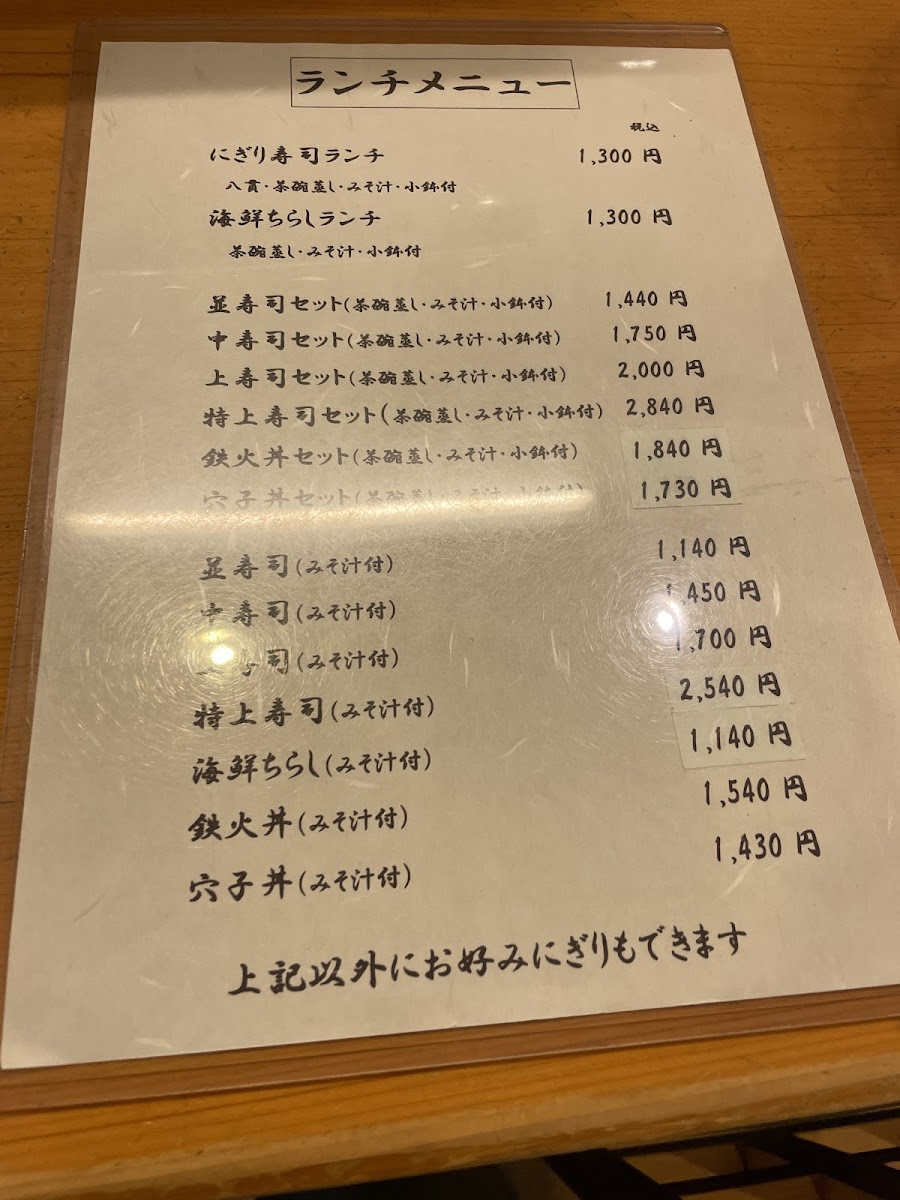 ランチメニュー
税込
にぎり寿司ランチ 1,300 円
八貫・茶碗蒸し・みそ汁・小鉢付
海鮮ちらしランチ 1,300 円
茶碗蒸し・みそ汁・小鉢付
並寿司セット(茶碗蒸し・みそ汁・小鉢付) 1,440 円
中寿司セット(茶碗蒸し・みそ汁・小鉢付) 1,750 円
上寿司セット(茶碗蒸し・みそ汁・小鉢付) 2,000 円
特上寿司セット(茶碗蒸し・みそ汁・小鉢付) 2,840 円
鉄火丼セット(茶碗蒸し・みそ汁・小鉢付) 1,840 円
穴子丼セット(茶碗蒸し・みそ汁・小鉢付) 1,730 円
並寿司(みそ汁付) 1,140 円
中寿司(みそ汁付) 1,450 円
寿司(みそ汁付) 1,700 円
特上寿司(みそ汁付) 2,540 円
海鮮ちらし(みそ汁付) 1,140 円
鉄火丼(みそ汁付) 1,540 円
穴子丼(みそ汁付) 1,430 円
上記以外にお好みにぎりもできます